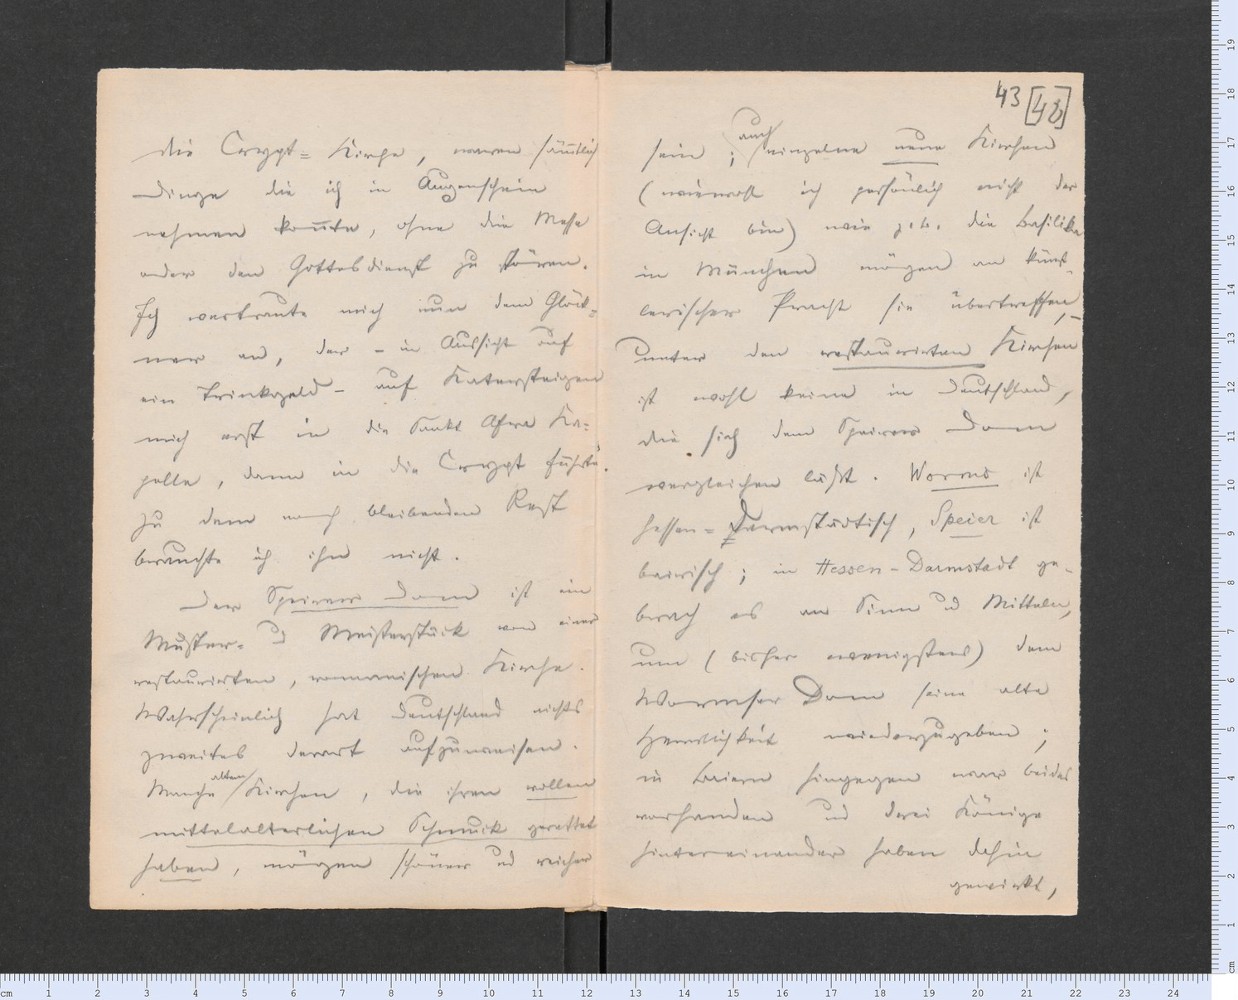 die Crypt= Kirche, waren sämtlich
Dinge die ich in Augenschein
nehmen konnte, ohne die Messe
oder den Gottesdienst zu stören.
Ich vertraute mich nun dem Glöck=
ner an, der – in Aussicht auf
ein Trinkgeld – auf Katersteigen
mich erst in die Sankt Afra Ka=
pelle, dann in die Crypt führte.
Zu dem noch bleibenden Rest
brauchte ich ihn nicht.
Der Speirer Dom ist ein
Muster- und Meisterstück von einer
restaurirten, romanischen Kirche.
Wahrscheinlich hat Deutschland nichts
zweites derart aufzuweisen.
Manche alten Kirchen, die ihren vollen
mittelalterlichen Schmuck gerettet
haben, mögen schöner und reicher
43 [42]
sein; auch einzelne neue Kirchen
(wiewohl ich persönlich nicht der
Ansicht bin) wie z. B. die Basilika
in München mögen an künst-
lerischer Pracht sie übertreffen, –
unter den restaurirten Kirchen
ist wohl keine in Deutschland,
die sich dem Speirer Dom
vergleichen läßt. Worms ist
hessen=Darmstädtisch, Speier ist
bairisch; in Hessen-Darmstadt ge-
brach es an Sinn und Mitteln,
um (bisher wenigstens) dem
Wormser Dom seine alte
Herrlichkeit wiederzugeben;
in Baiern hingegen war beides
vorhanden und drei Könige
hintereinander haben dahin
gewirkt,